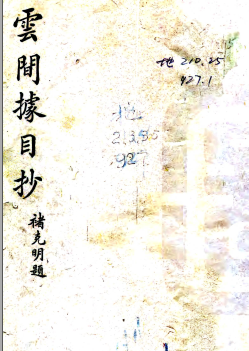 雲間據目抄
褚克明題
地 210.25
427.1
地
213.35
927